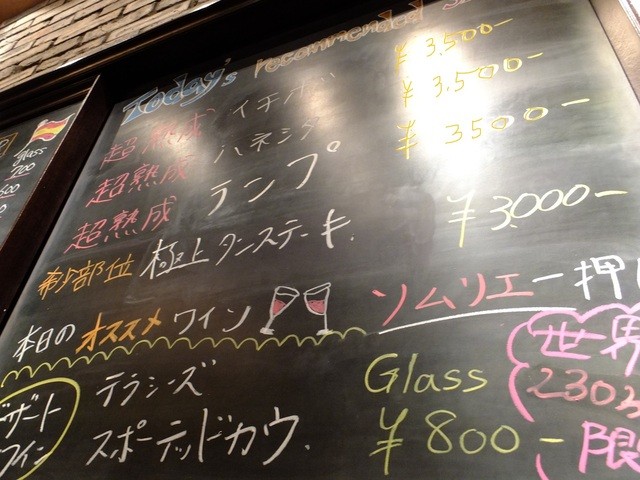 Today's recommended
超熟成 イチボ ¥3.500-
超熟成 ハネシタ ¥3.500-
超熟成 テンプ ¥3500-
希少部位 極上タンステーキ. ¥3.000-
本日のオススメワイン ソムリエ一押し
テラシーズ Glass
スポーテッドカウ. ¥800-
世界
限
glass
700